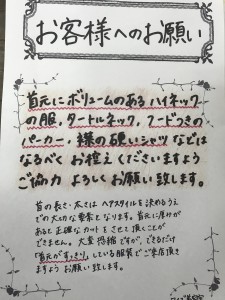 お客様へのお願い
首元にボリュームのあるハイネック
の服，タートルネック，フードつきの
パーカー・襟の硬いシャツなどは
なるべくお控えくださいますよう
ご協力よろしくお願い致します。
首の長さ・太さはヘアスタイルを決めるうえ
での大切な要素となります。首元に厚みが
あると正確なカットをさせて頂くことが
できません。大変恐縮ですが、できるだけ
「首元がすっきり」している服装でご来店頂き
ますようお願い致します。